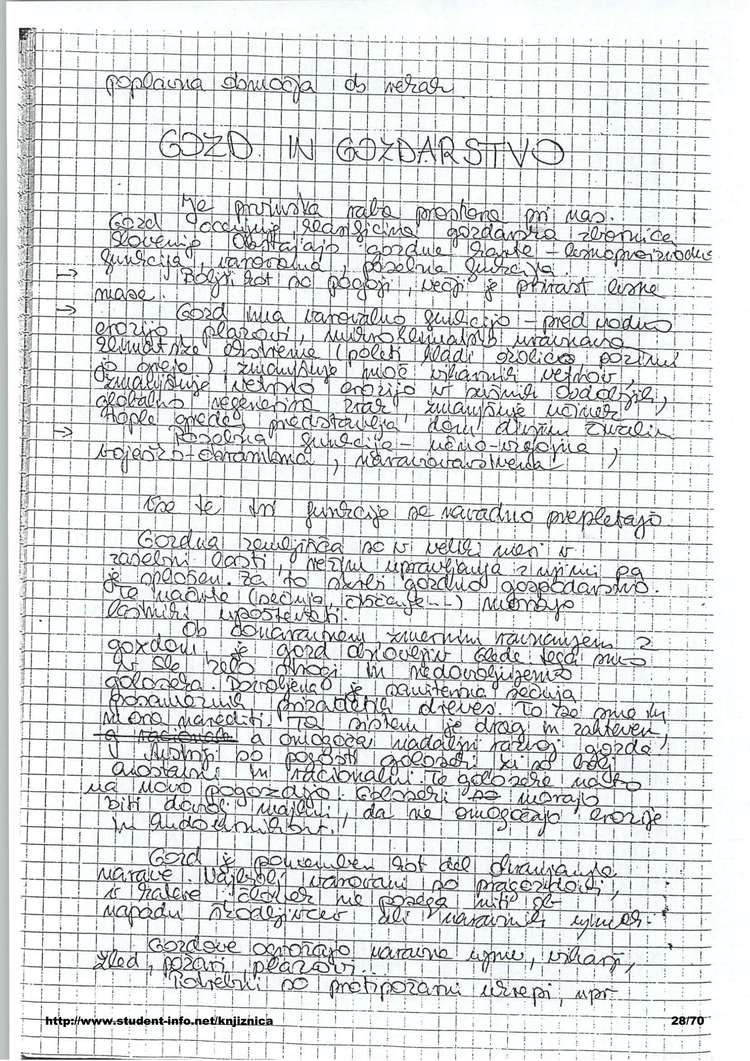 poplavna območja ob rekah
GOZD IN GOZDARSTVO
Je prvinska raba prostora pri nas.
Gozd gozdarska
Slovenije. Obstajajo gozdne – lesnoproizvodna
funkcija, varovalna, posebna funkcija.
→ Boljši kot so pogoji, večji je prirast lesne
mase.
→ Gozd ima varovalno funkcijo – pred vodno
erozijo, plazovi, mikroklimatsko uravnava
klimatske (poleti hladi okolico pozimi
jo greje), zmanjšuje moč viharnih vetrov,
zmanjšuje vetrno erozijo v sušnih obdobjih,
globalno regenerira zrak, zmanjšuje
tople grede, predstavlja dom divjim živalim
→ Posebna funkcija – učno-vzgojna,
vojaško-obrambna, naravovarstvena
Vse te tri funkcije se navadno prepletajo
Gozdna zemljišča so v veliki meri v
zasebni lasti, režim upravljanja z njimi pa
je splošen. Za to skrbi gozdno gospodarstvo.
Te načrte (sečnja, čiščenje...) morajo
lastniki upoštevati.
Ob ravnanjem z
gozdom, je gozd obnovljiv. Glede tega smo
v Slo zelo strogi in nedovoljujemo
goloseka. Dovoljena je sanitarna sečnja
posameznih dreves. To
narediti. Ta sistem je drag in zahteven,
a omogoča nadaljni razvoj gozda
so goloseki ki so bolj
enostavni in racionalni. Te goloseke nato
na novo pogozdijo. Goloseki morajo
biti dovolj majhni, da ne omogočajo erozije
in hudournikov.
Gozd je pomemben kot del ohranjanja
narave. Najbolj varovani so pragozdovi,
v katere človek ne posega niti ob
napadu škodljivcev ali naravnih ujmah.
Gozdove ogrožajo naravne ujme, viharji,
žled, požari, plazovi...
Potrebni so protipožarni ukrepi, npr.
http://www.student-info.net/knjiznica
28/70